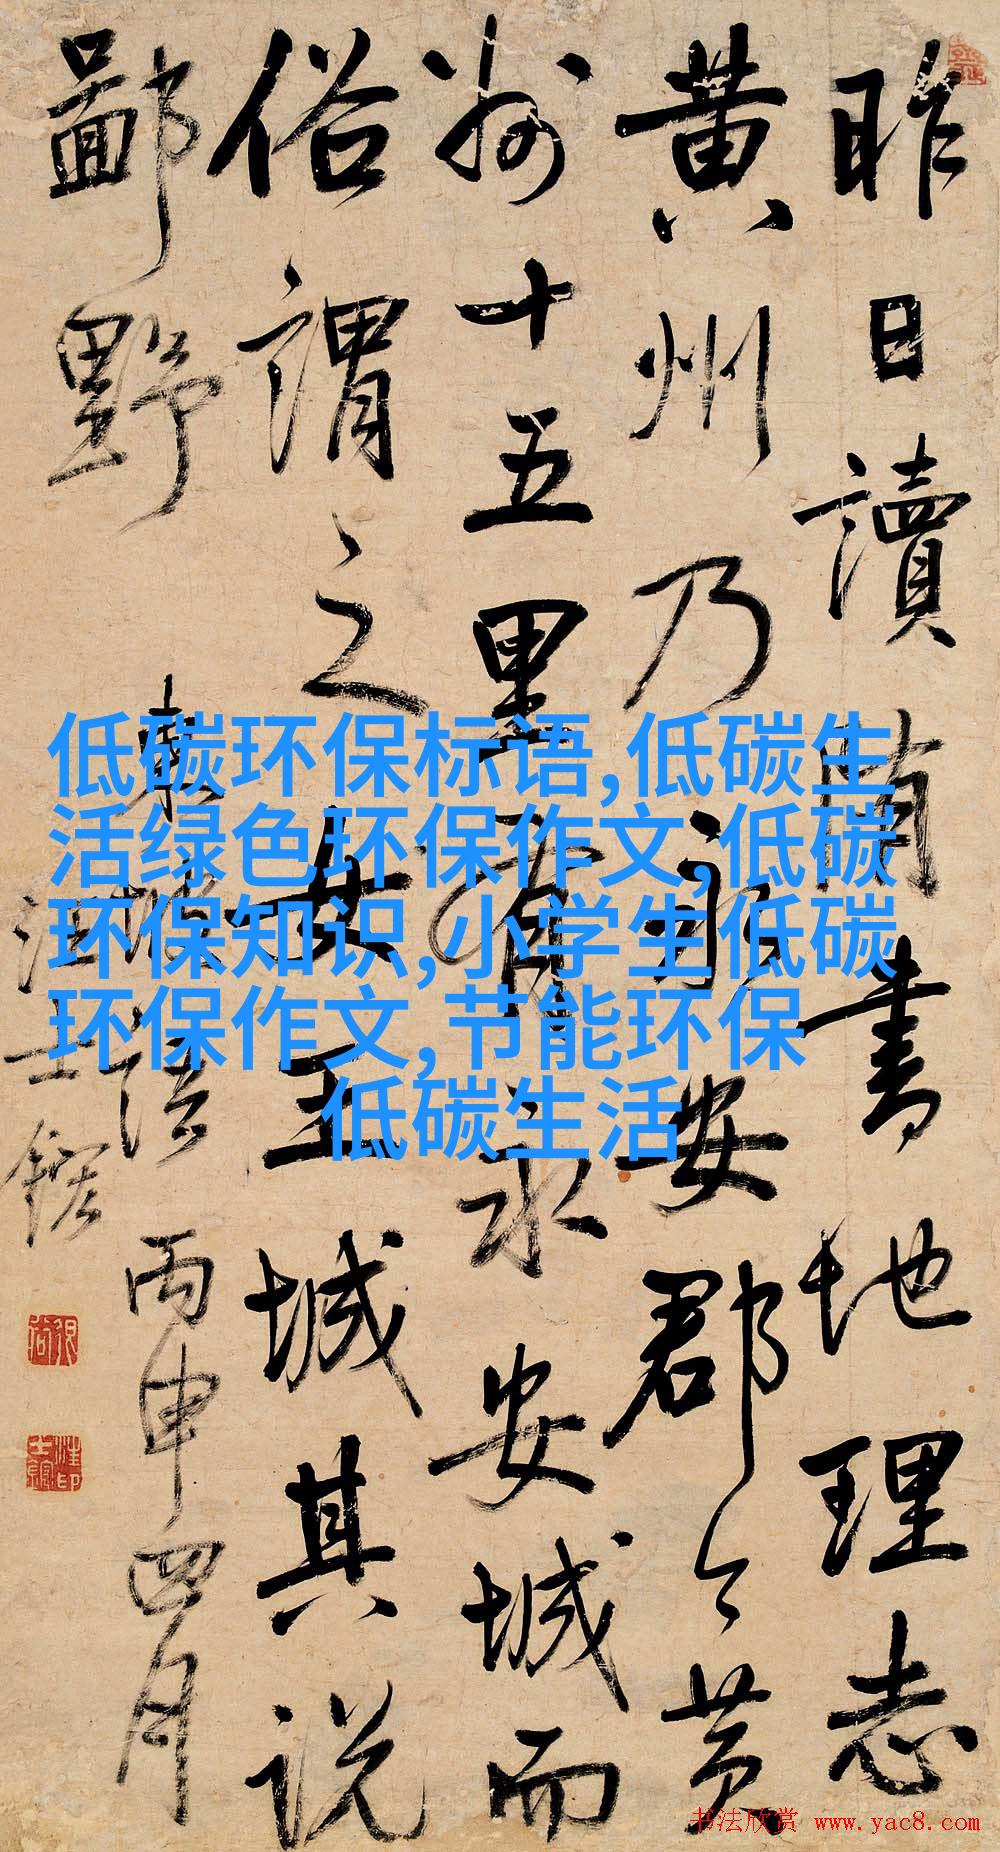 昨日讀書地理志
黄州乃永安郡今黄
州十五里有永安城而
俗謂之女王城其説
鄙野
東坡語 丙申四月
汪士鋐
低碳环保标语,低碳生
活绿色环保作文,低碳
环保知识,小学生低碳
环保作文,节能环保
低碳生活
书法欣赏 www.yac8.com